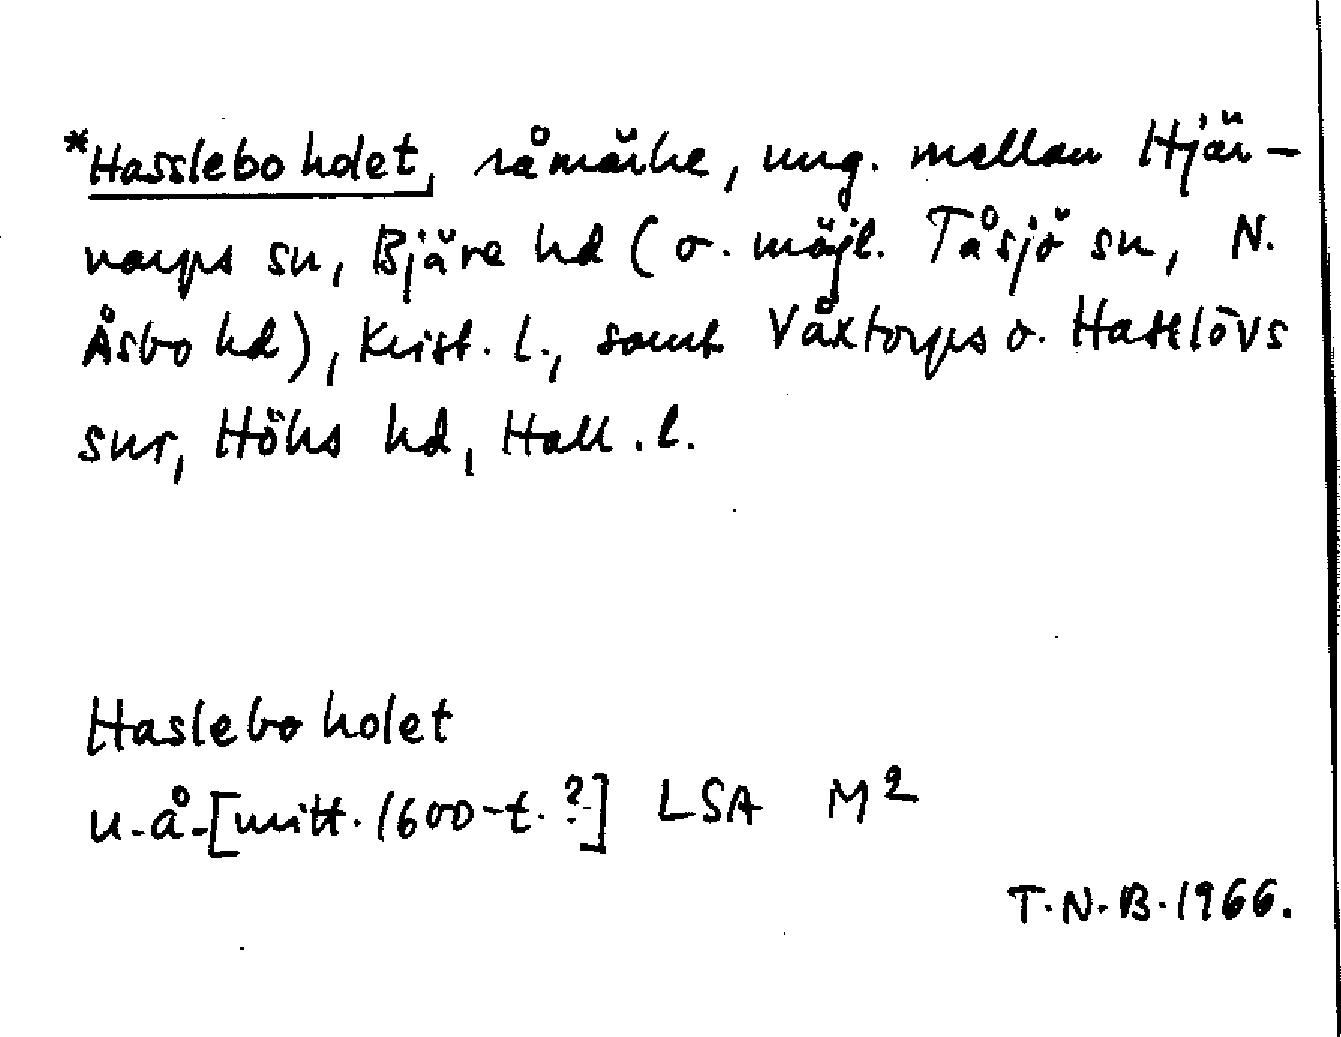 *Hasslebo holet, råmärke, ung. mellan Hjär-
narps sn, Bjäre hd (o. möjl. Tåsjö sn, N.
Åsbo hd), Krist. l., samt Våxtorps o. Hasslövs
snr, Höks hd, Hall. l.
Haslebo holet
u.å. [mitt. 1600-t.?] LSA M2
T.N.B. 1966.